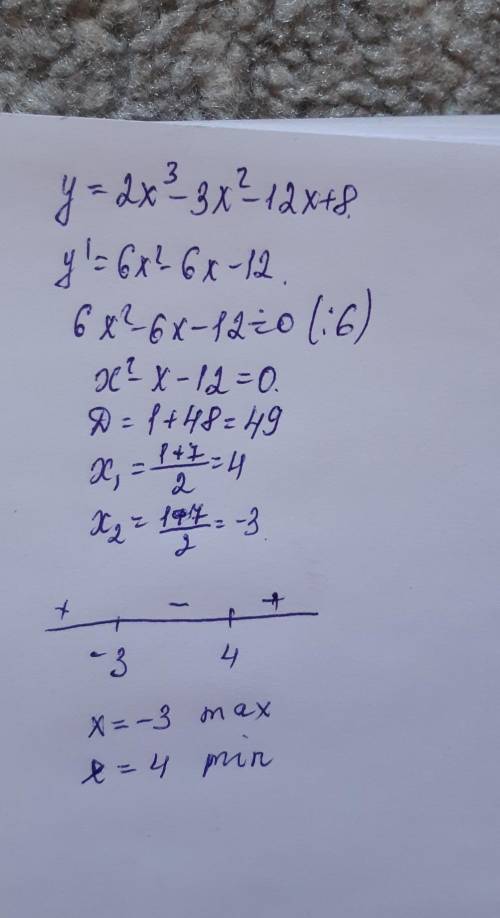 y = 2x³ - 3x² - 12x + 8.
y' = 6x² - 6x - 12.
6x² - 6x - 12 = 0 (:6)
x² - x - 12 = 0.
D = 1 + 48 = 49
x₁ = (1+7)/2 = 4
x₂ = (1-7)/2 = -3.
+ - +
-3 4
x = -3 max
x = 4 min